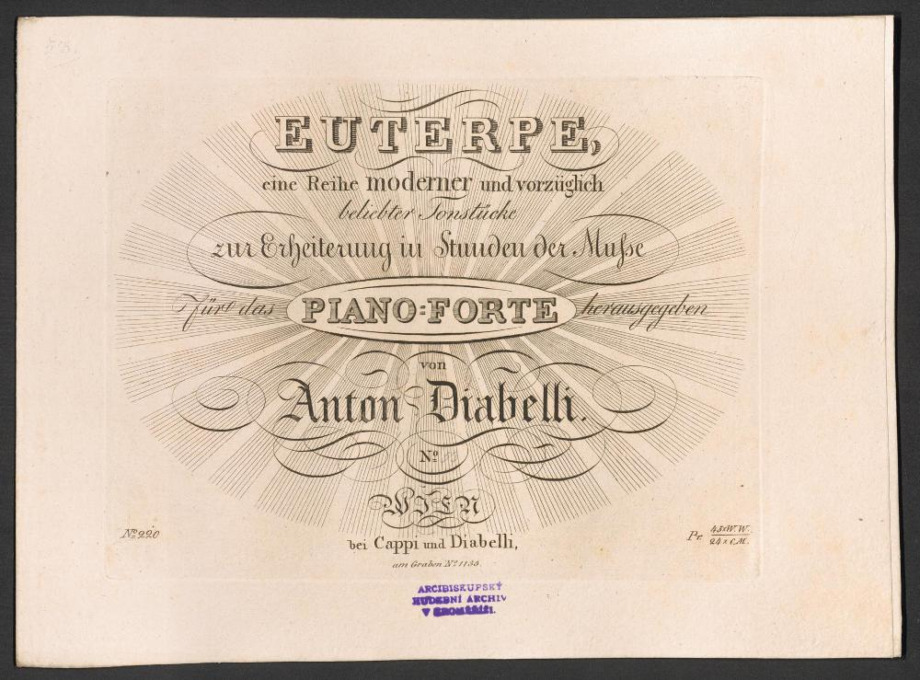 EUTERPE,
eine Reihe moderner und vorzüglich
beliebter Tonstücke
zur Erheiterung in Stunden der Muſse
Für das PIANO=FORTE herausgegeben
von
Anton Diabelli.
No
WIEN
No 220
bei Cappi und Diabelli,
Pr 45x W.W.
24x C.M.
am Graben No 1133.
ARCIBISKUPSKÝ
HUDEBNÍ ARCHIV
V KROMĚŘÍŽI.